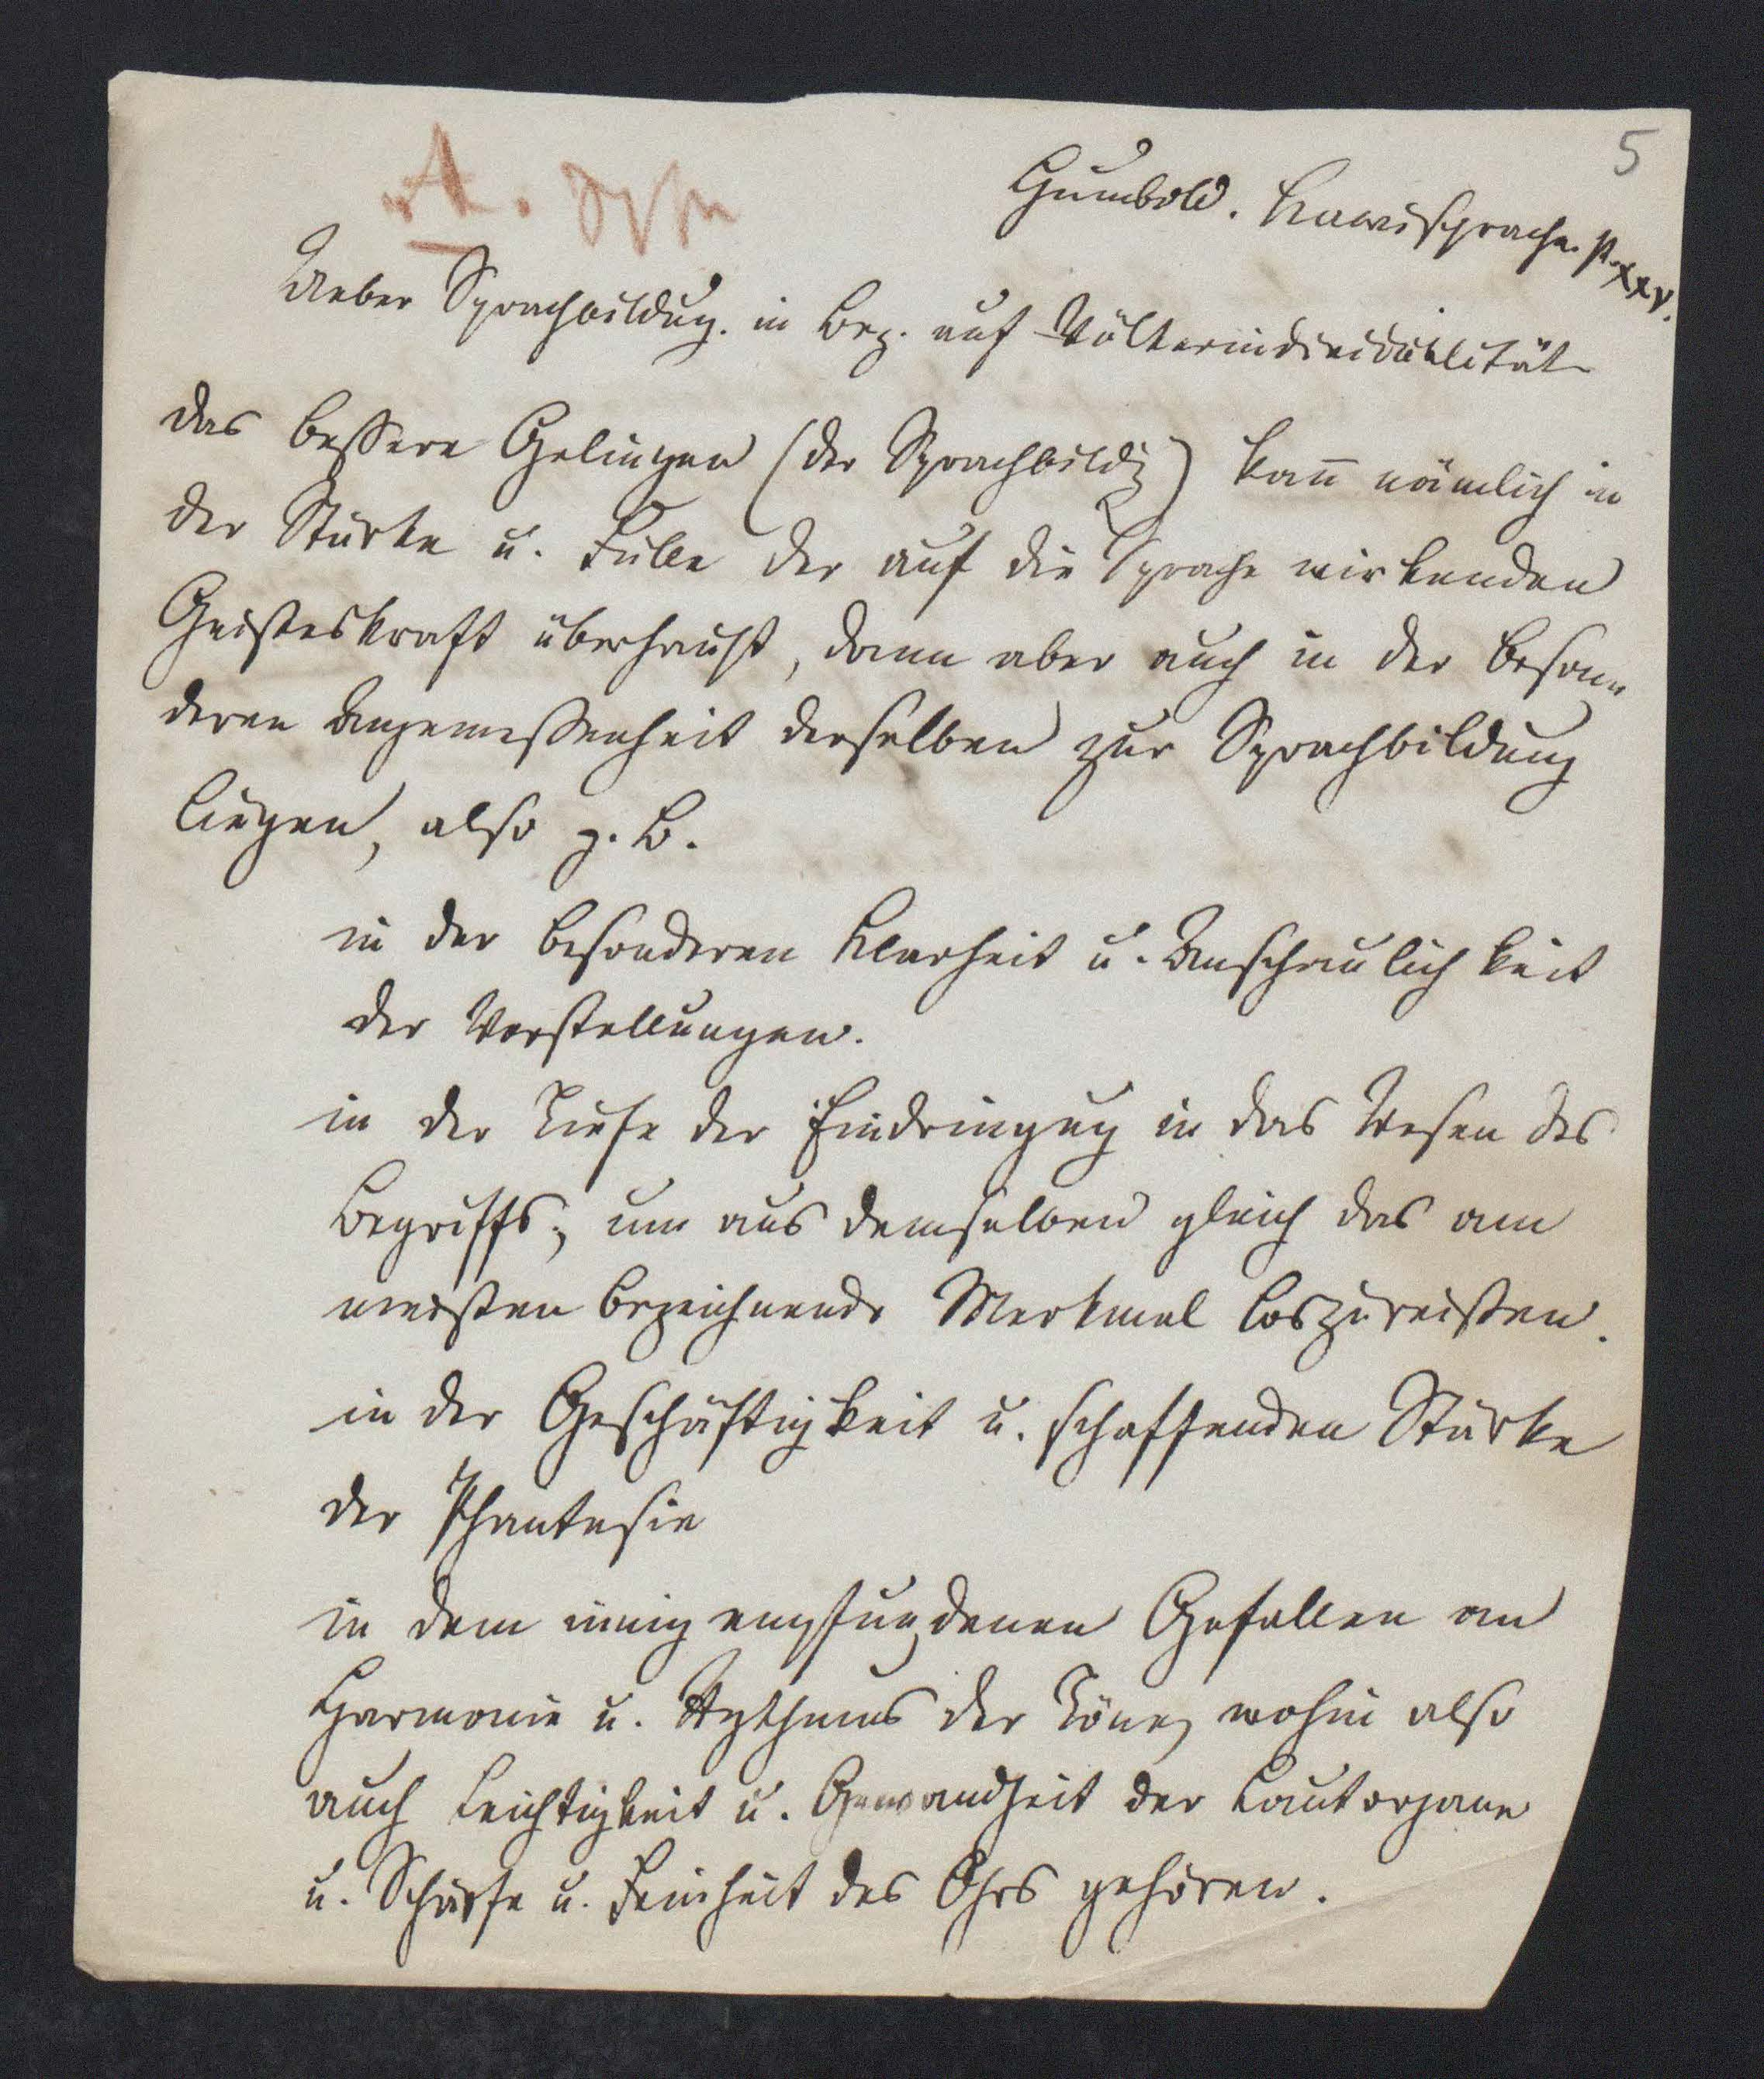 5
Humbold. Kawisprache. p. XXV.
Ueber Sprachbildug. in Bez. auf Völkerindividualität
das bessere Gelingen (der Sprachbildg) kañ nämlich in
der Stärke u. Fülle der auf die Sprache wirkenden
Geisteskraft überhaupt, dann aber auch in der beson„
deren Angemessenheit derselben zur Sprachbildung
liegen, also z. B.
in der besonderen Klarheit u. Anschaulichkeit
der Vorstellungen.
in der Tiefe der Eindringug in das Wesen des
Begriffs, um aus demselben gleich das am
meisten bezeichnende Merkmal loszureißen.
in der Geschäftigkeit u. schaffenden Stärke
der Phantasie
in dem innig empfundenen Gefallen an
Harmonie u. Rythmus der Töne, wohin also
auch Leichtigkeit u. Gewandheit der Lautorgane
u. Schärfe u. Feinheit des Ohrs gehören.